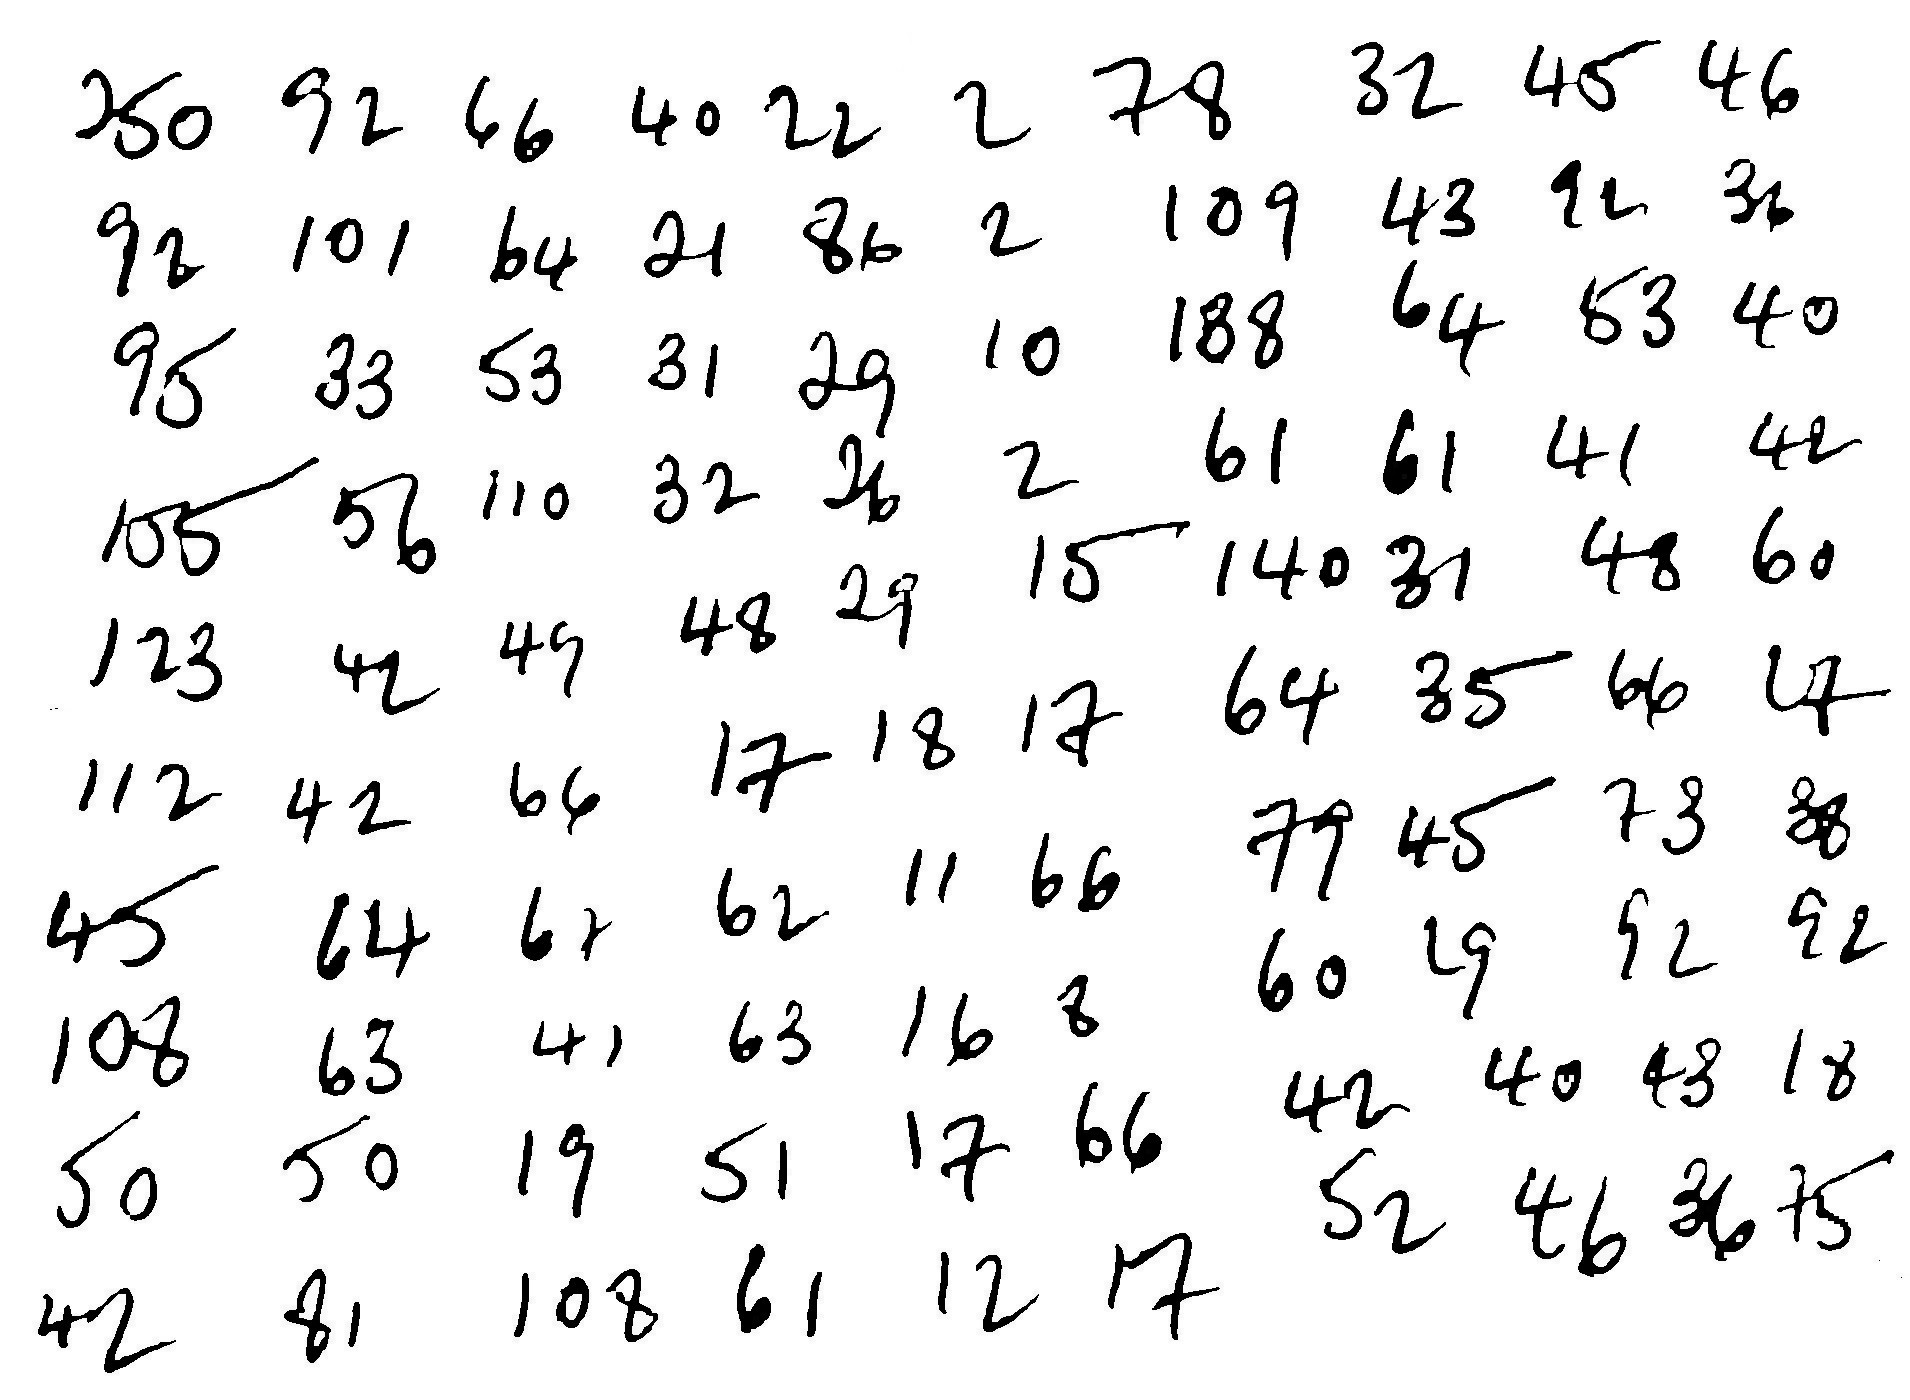 250 92 66 40 22 2 78 32 45 46
92 101 64 21 86 2 109 43 92 36
95 33 53 31 29 10 188 64 53 40
155 56 110 32 26 2 61 61 41 42
123 42 49 48 29 15 140 31 48 60
112 42 66 17 18 17 64 35 66 27
45 64 67 62 11 66 79 45 73 38
108 63 41 63 16 8 60 29 92 92
50 50 19 51 17 66 42 40 43 18
42 81 108 61 12 17 52 46 36 75